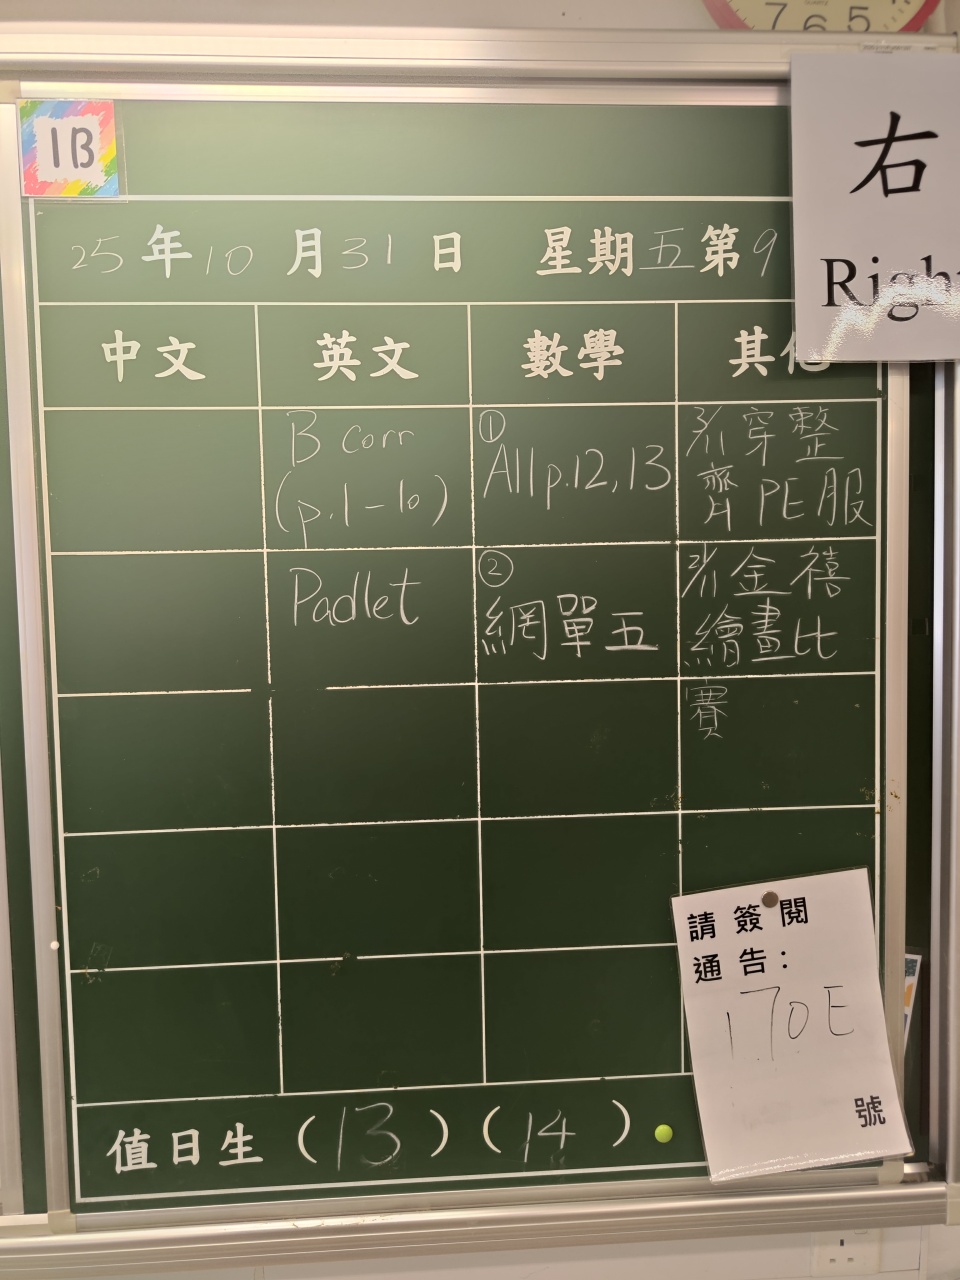 7 6 5
1B
右
Right
25年10月31日 星期五第9
中文 英文 數學 其他
B corr
(p.1-10)
①
All p.12,13
穿整
齊PE服
Padlet
②
網單五
金禧
繪畫比
賽
請簽閱
通告：
170E
號
值日生 (13) (14)